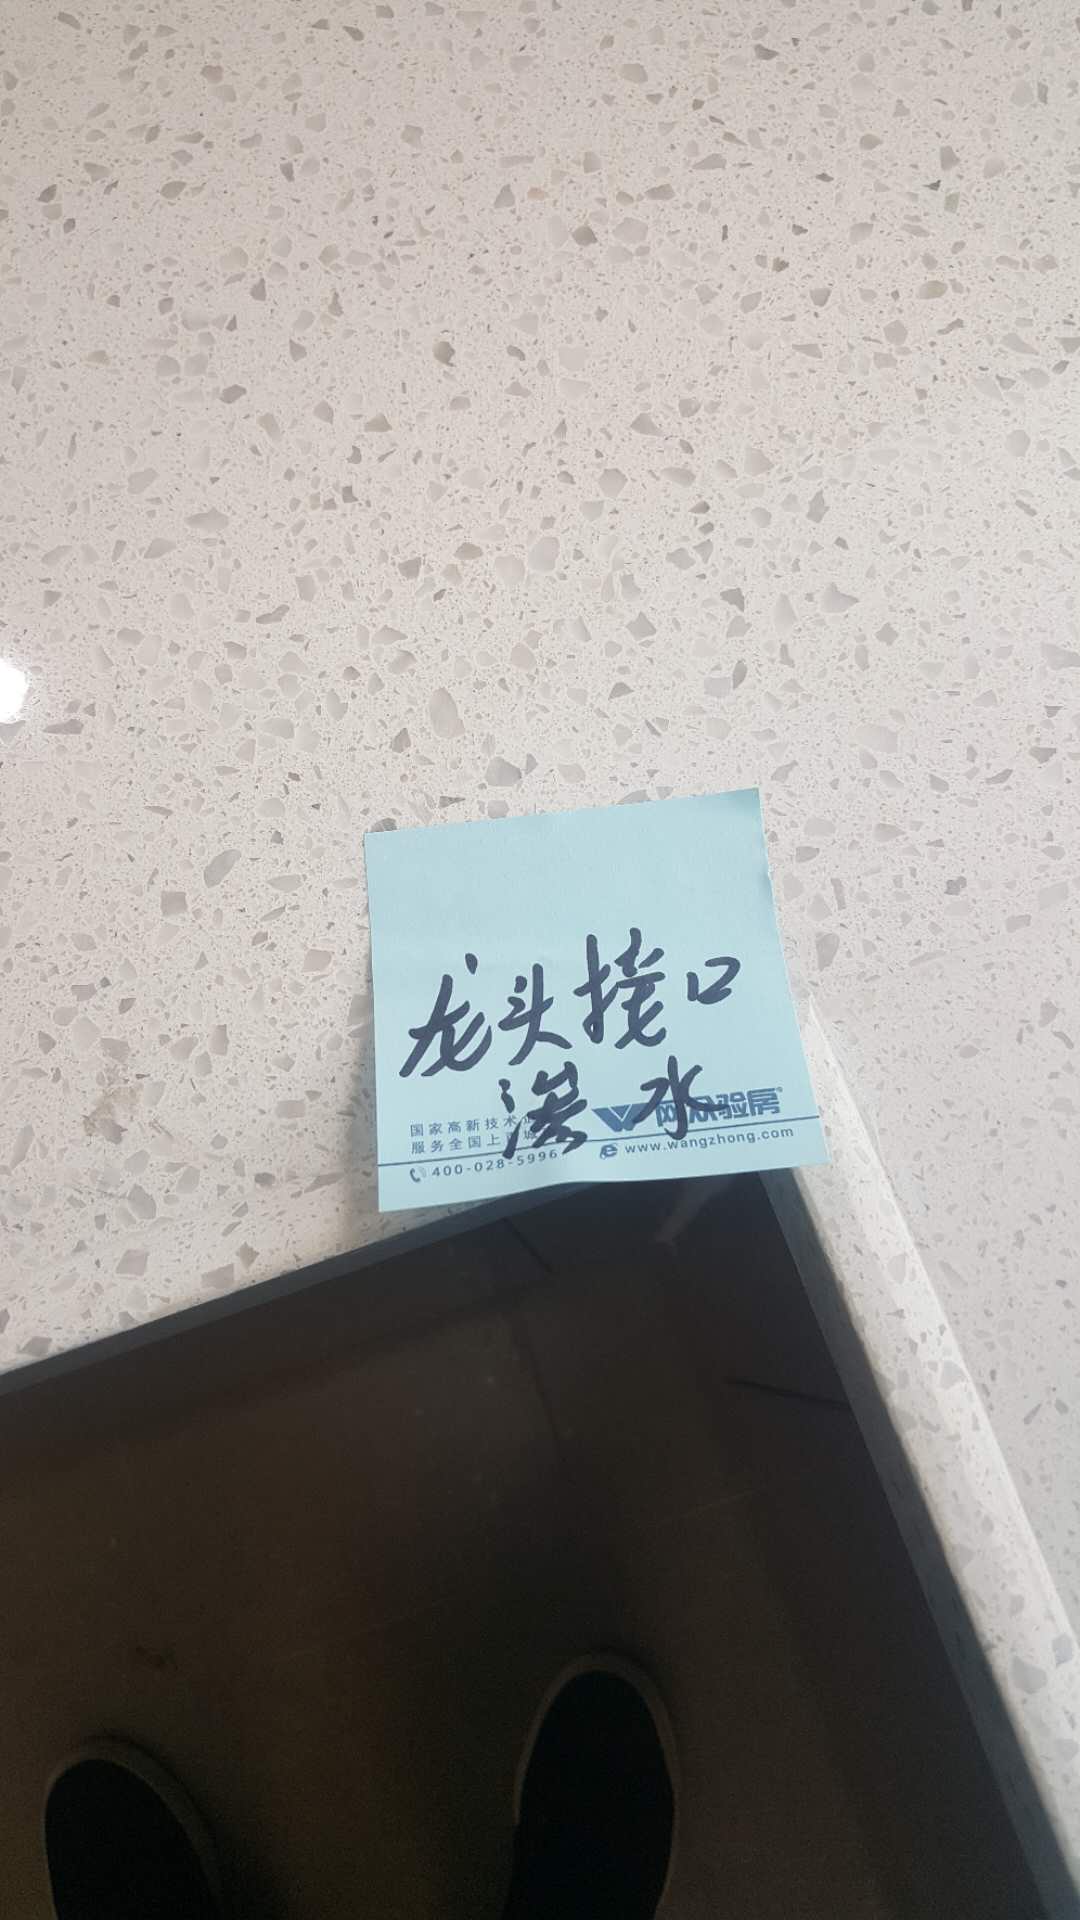 龙头接口
渗水
国家高新技术
服务全国上
网众验房
400-028-5996
www.wangzhong.com